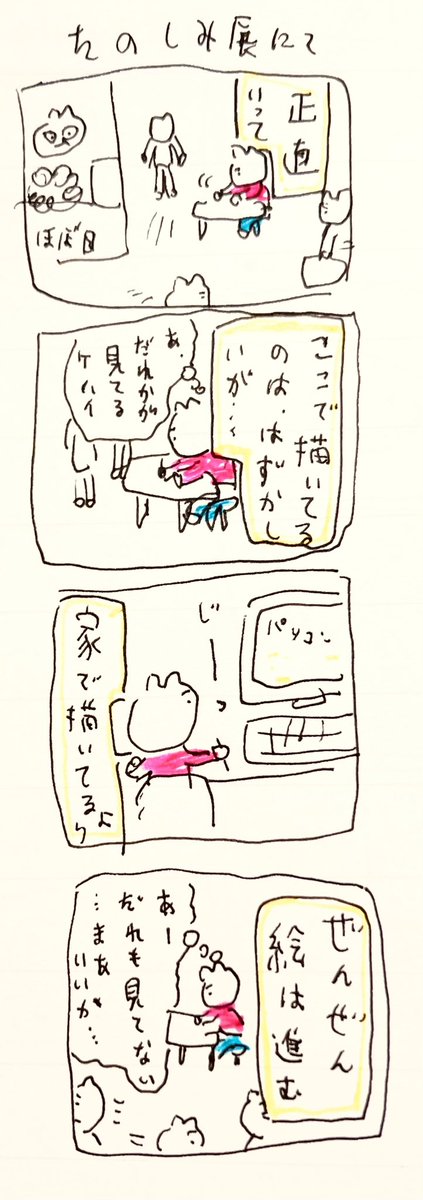 たのしみ展にて
正直
いって
ほぼ日
ここで描いてる
のは、はずかし
いが…
あ、
だれかが
見てる
ケハイ
パソコン
じーっ
家で描いてるより
ぜんぜん
絵は進む
あー
だれも見てない
…まあ
いいが…